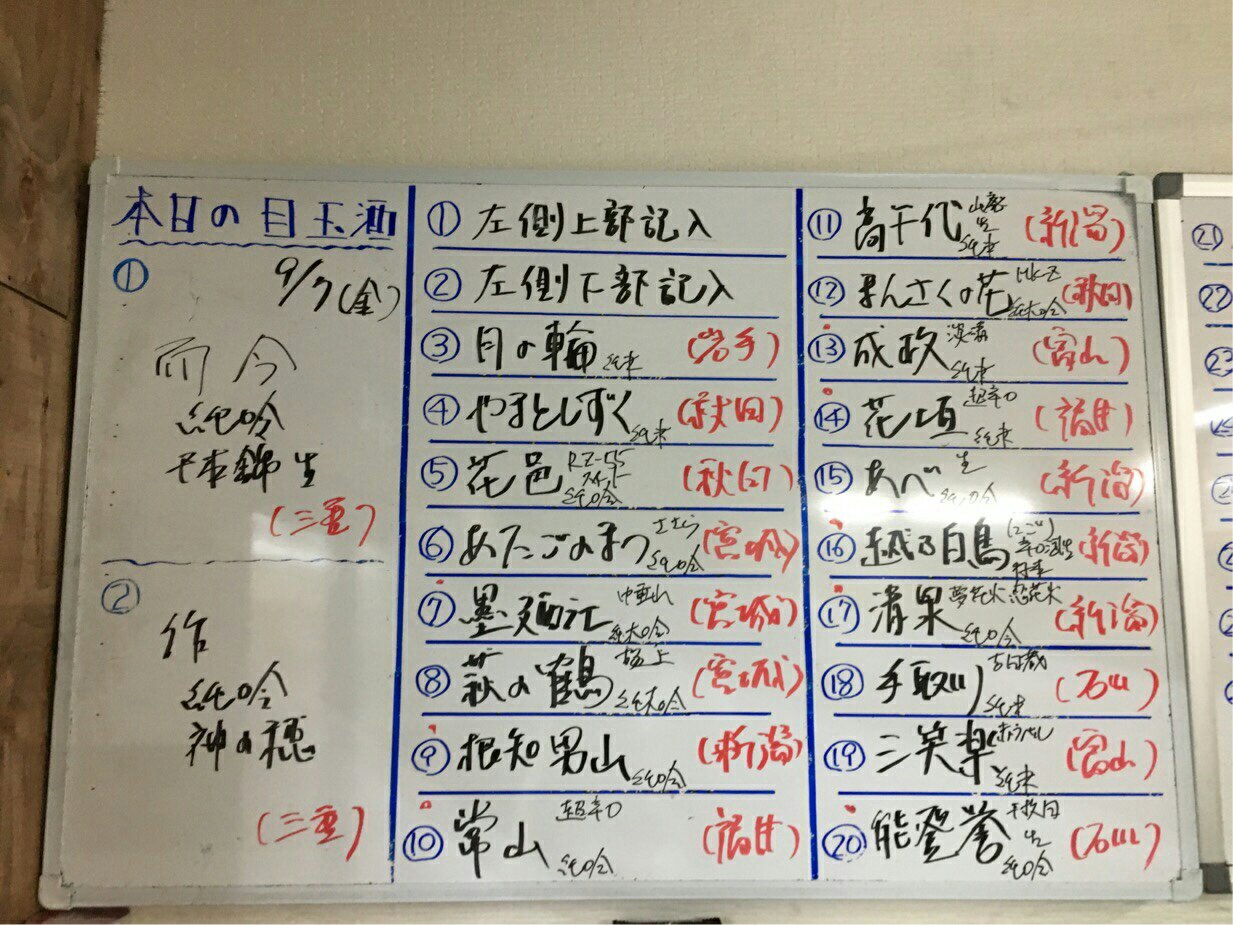 本日の目玉酒
①
9/7(金)
而今
純吟
千本錦 生
(三重)
②
作
純吟
神の穂
(三重)
① 左側上部記入
② 左側下部記入
③ 月の輪 純米 (岩手)
④ やまとしずく 純米 (秋田)
⑤ 花邑 純吟 (秋田)
⑥ あたごのまつ ささら 純吟 (宮城)
⑦ 墨廼江 中垂れ 純大吟 (宮城)
⑧ 萩の鶴 極上 純大吟 (宮城)
⑨ 根知男山 純吟 (新潟)
⑩ 常山 超辛口 純吟 (福井)
⑪ 高千代 山廃 生 純米 (新潟)
⑫ まんさくの花 MK-Z 純大吟 (秋田)
⑬ 成政 純米 (富山)
⑭ 花垣 超辛口 純米 (福井)
⑮ あべ 生 純吟 (新潟)
⑯ 越乃白鳥 (新潟)
⑰ 清泉 夢花火 恋花火 純吟 (新潟)
⑱ 手取川 吉田蔵 純米 (石川)
⑲ 三笑楽 純米 (富山)
⑳ 能登誉 生 純吟 (石川)
21
22
23